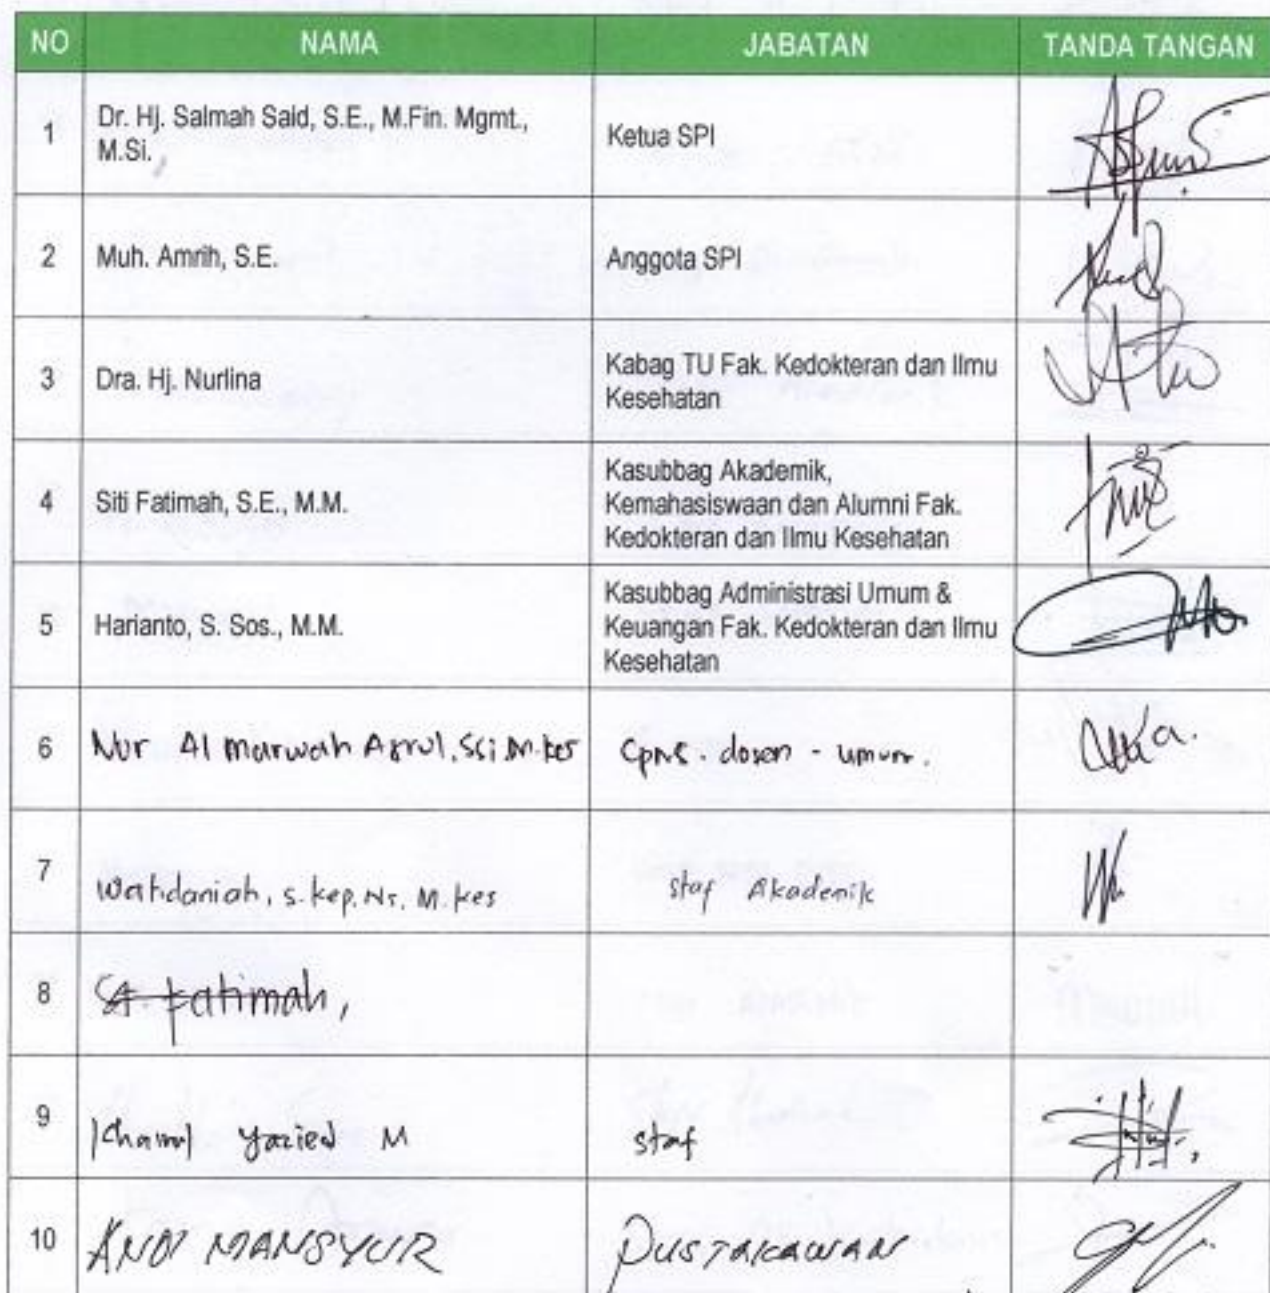 NO NAMA JABATAN TANDA TANGAN
1 Dr. Hj. Salmah Said, S.E., M.Fin. Mgmt., M.Si. Ketua SPI
2 Muh. Amrih, S.E. Anggota SPI
3 Dra. Hj. Nurlina Kabag TU Fak. Kedokteran dan Ilmu Kesehatan
4 Siti Fatimah, S.E., M.M. Kasubbag Akademik, Kemahasiswaan dan Alumni Fak. Kedokteran dan Ilmu Kesehatan
5 Harianto, S. Sos., M.M. Kasubbag Administrasi Umum & Keuangan Fak. Kedokteran dan Ilmu Kesehatan
6 Nur Al Marwah Asrul, S.Si M.kes Cpns. dosen - umum.
7 Wahdaniah, S.kep. Ns. M.kes staf Akademik
8 St. Fatimah,
9 Yazied M staf
10 MANSYUR PUSTAKAWAN